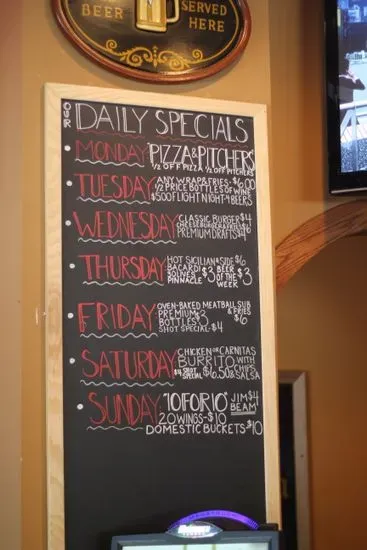 BEER SERVED
HERE
OUR DAILY SPECIALS
MONDAY "PIZZA & PITCHERS"
1/2 OFF PIZZA 1/2 OFF PITCHERS
TUESDAY ANY WRAP & FRIES-$6.00
1/2 PRICE BOTTLES OF WINE
$5.00 FLIGHT NIGHT-4 BEERS
WEDNESDAY CLASSIC BURGER $4
CHEESEBURGER & FRIES
PREMIUM DRAFTS $4
THURSDAY HOT SICILIAN & SIDE $6
BACARDI
SOLVES
PINNACLE $3 BEER
OF THE
WEEK $3
FRIDAY OVEN-BAKED MEATBALL SUB
& FRIES
$6
PREMIUM
BOTTLES $3
SHOT SPECIAL-$4
SATURDAY CHICKEN OR CARNITAS
BURRITO WITH
CHIPS
& SALSA
$4 SHOT
SPECIAL $6.50
SUNDAY "10 FOR 10" JIM $4
BEAM
20 WINGS-$10
DOMESTIC BUCKETS-$10